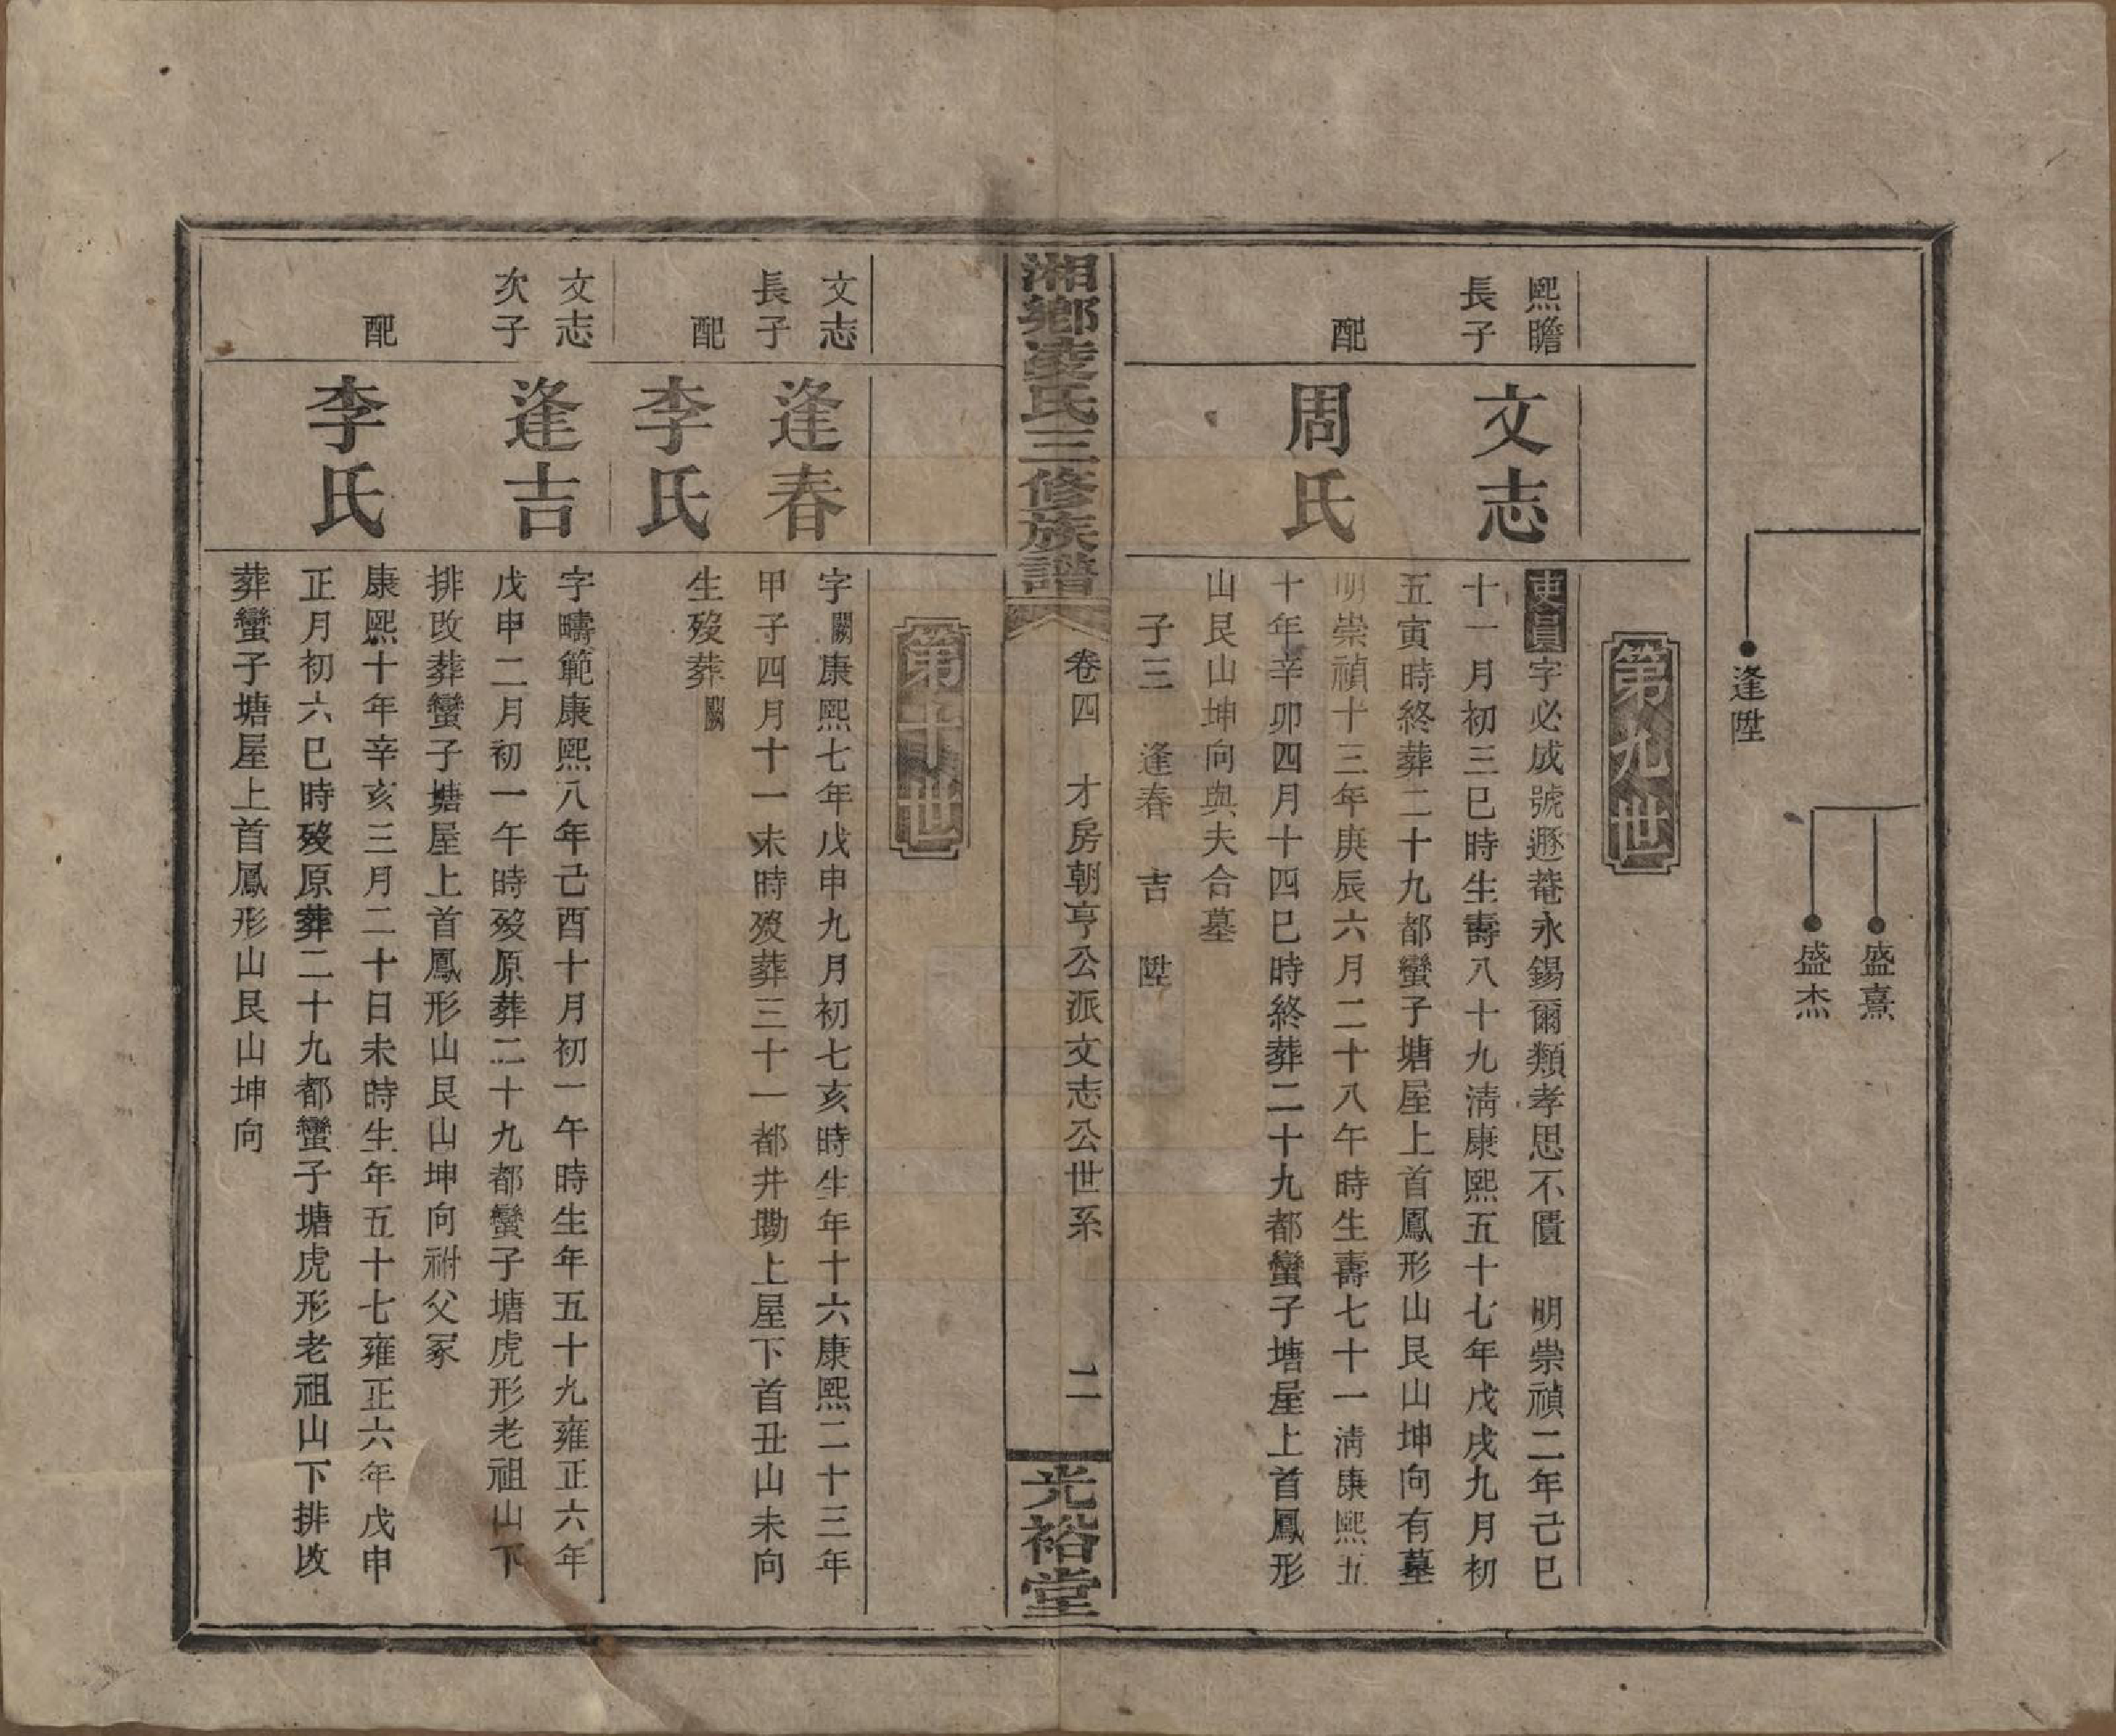 盛熹
盛杰
逢陞
第九世
熙瞻
長子
文志
吏員字必成號遯菴永錫爾類孝思不匱 明崇禎二年己巳
十一月初三巳時生壽八十九淸康熙五十七年戊戌九月初
五寅時終葬二十九都蠻子塘屋上首鳳形山艮山坤向有墓
配
周氏
明崇禎十三年庚辰六月二十八午時生壽七十一淸康熙五
十年辛卯四月十四巳時終葬二十九都蠻子塘屋上首鳳形
山艮山坤向與夫合墓
子三 逢春 吉 陞
湘鄉凌氏三修族譜
卷四 才房朝亨公派文志公世系 二
光裕堂
第十世
文志
長子
逢春
字闕康熙七年戊申九月初七亥時生年十六康熙二十三年
甲子四月十一未時歿葬三十一都井坳上屋下首丑山未向
配
李氏
生歿葬闕
文志
次子
逢吉
字疇範康熙八年己酉十月初一午時生年五十九雍正六年
戊申二月初一午時歿原葬二十九都蠻子塘虎形老祖山下
排改葬蠻子塘屋上首鳳形山艮山坤向祔父冢
配
李氏
康熙十年辛亥三月二十日未時生年五十七雍正六年戊申
正月初六巳時歿原葬二十九都蠻子塘虎形老祖山下排改
葬蠻子塘屋上首鳳形山艮山坤向